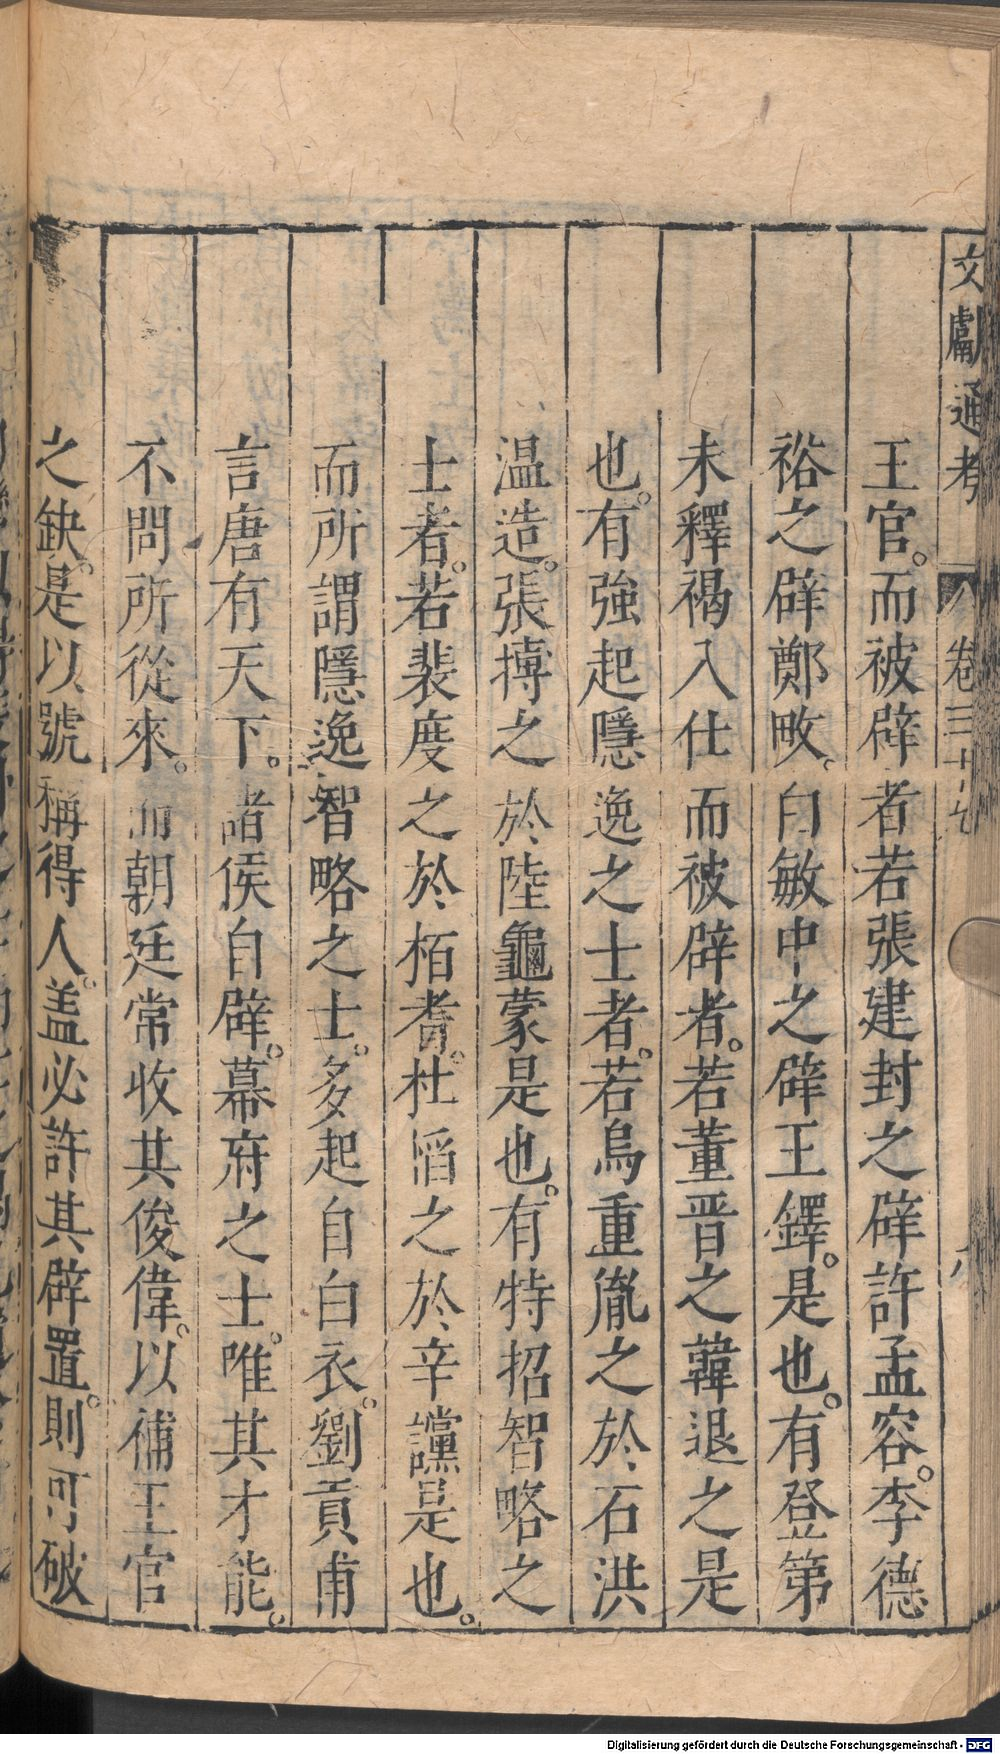 文獻通考 卷三十七 八
王官。而被辟者若張建封之辟許孟容。李德
裕之辟鄭畋。白敏中之辟王鐸。是也。有登第
未釋褐入仕而被辟者。若董晉之韓退之是
也。有強起隱逸之士者。若烏重胤之於石洪
温造。張摶之於陸龜蒙是也。有特招智略之
士者。若裴度之於栢耆。杜慆之於辛讜是也。
而所謂隱逸智略之士。多起自白衣。劉貢甫
言唐有天下。諸侯自辟。幕府之士。唯其才能。
不問所從來。而朝廷常收其俊偉。以補王官
之缺。是以號稱得人。盖必許其辟置。則可破
Digitalisierung gefördert durch die Deutsche Forschungsgemeinschaft - DFG